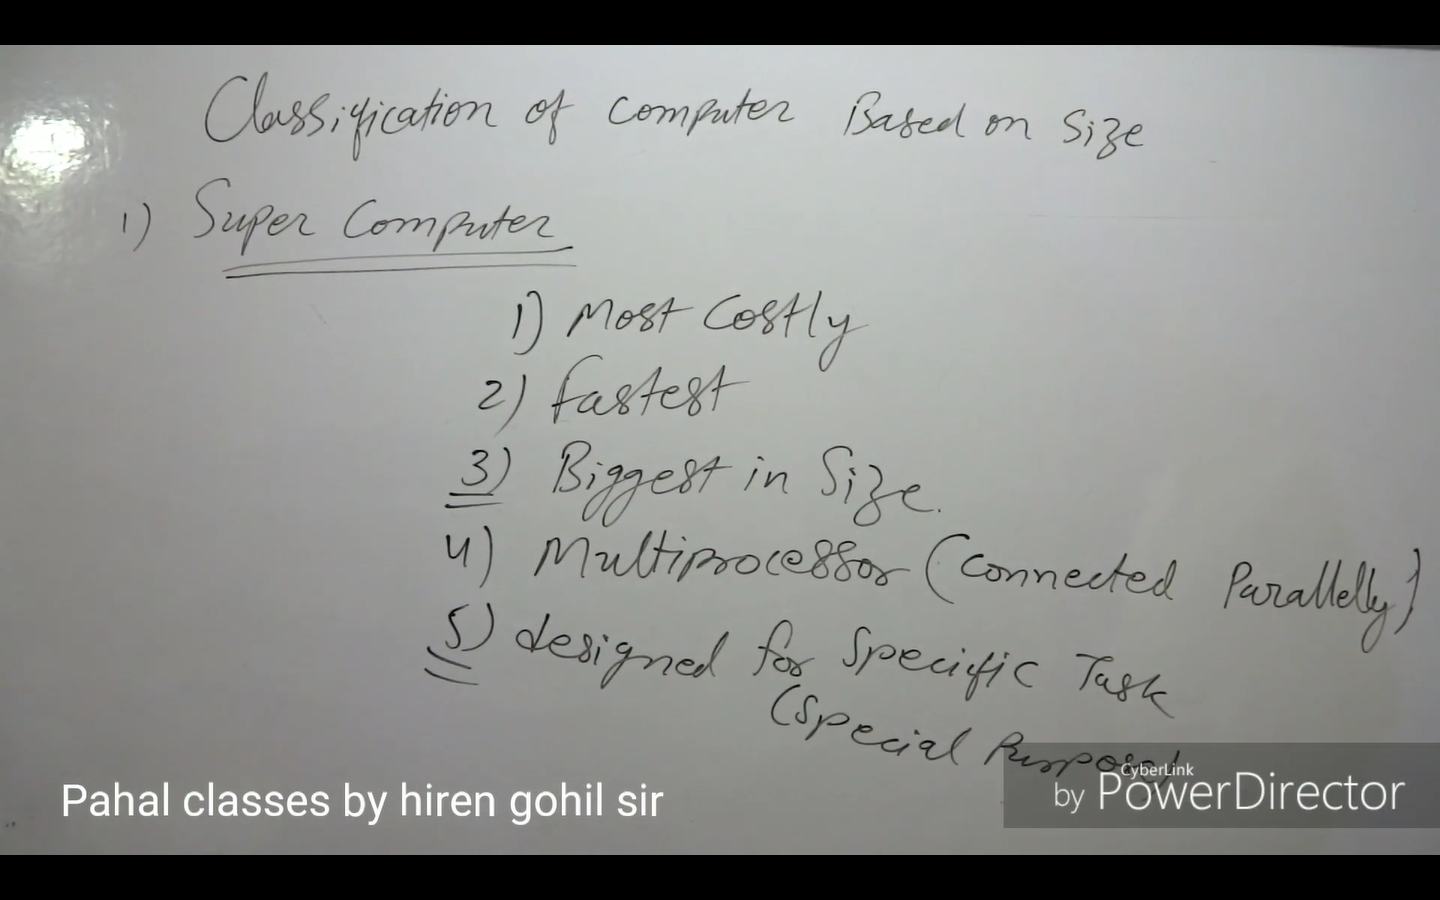 Classification of Computer Based on Size
1) Super Computer
1) Most Costly
2) fastest
3) Biggest in Size.
4) Multiprocessor (Connected Parallelly)
5) designed for Specific Task
(Special Purpose)
Pahal classes by hiren gohil sir
by CyberLink PowerDirector